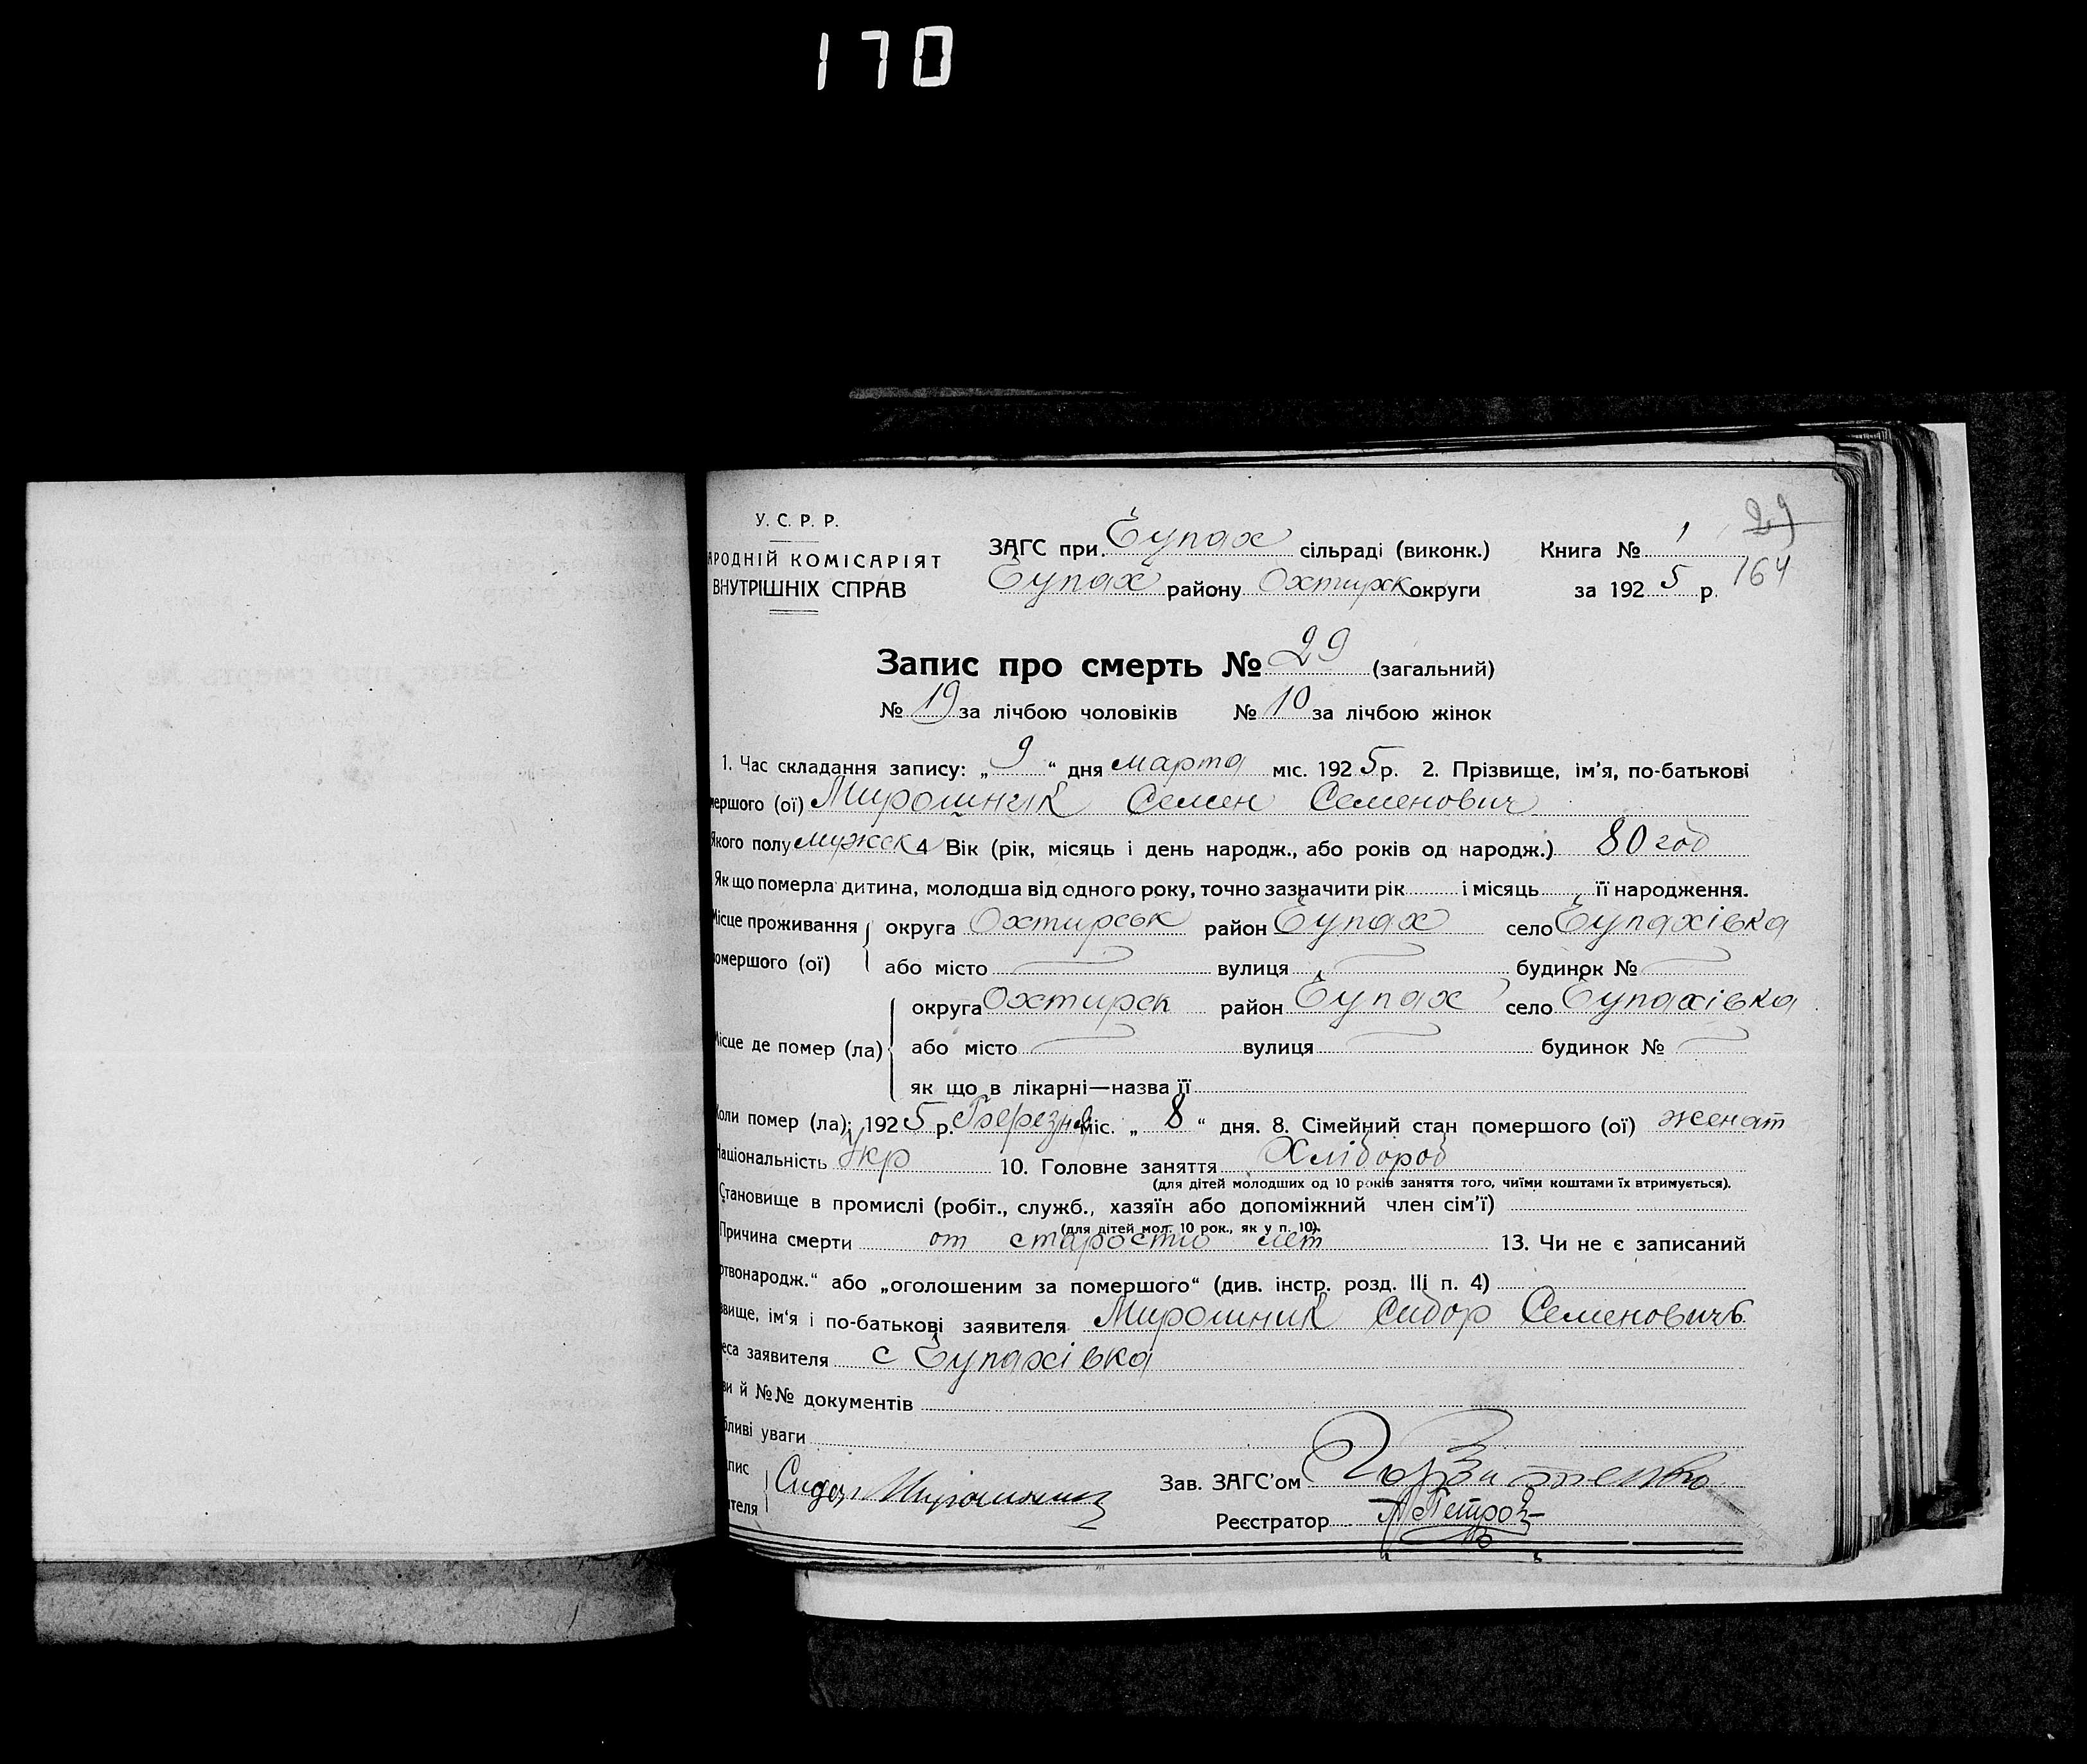 170
У. С. Р. Р.
АРОДНІЙ КОМІСАРІЯТ
ВНУТРІШНІХ СПРАВ
ЗАГС при Єупах сільраді (виконк.)
Єупах району Охтирк округи
Книга № 1
за 1925 р.
29
164
Запис про смерть № 29 (загальний)
№ 19 за лічбою чоловіків № 10 за лічбою жінок
1. Час складання запису: „ 9 “ дня марта міс. 1925 р. 2. Прізвище, ім'я, по-батькові
мершого (ої) Мирошник Семен Семенович
Якого полу мужск 4 Вік (рік, місяць і день народж., або років од народж.) 80 год
Як що померла дитина, молодша від одного року, точно зазначити рік і місяць її народження.
Місце проживання округа Охтирськ район Єупах село Єупахівка
омершого (ої) або місто вулиця будинок №
округа Охтирск район Єупах село Єупахівка
Місце де помер (ла) або місто вулиця будинок №
як що в лікарні—назва її
Коли помер (ла): 1925 р. Березня міс. „ 8 “ дня. 8. Сімейний стан помершого (ої) женат
Національність Укр 10. Головне заняття Хлібороб
(для дітей молодших од 10 років заняття того, чиїми коштами їх втримується).
Становище в промислі (робіт., служб., хазяїн або допоміжний член сім'ї)
(для дітей мол. 10 рок., як у п. 10).
Причина смерти от старостю лет 13. Чи не є записаний
ртвонародж.“ або „оголошеним за помершого“ (див. інстр. розд. III п. 4)
звище, ім'я і по-батькові заявителя Мирошник Сидор Семеновичь
еса заявителя с Єупахівка
ви й №№ документів
бливі уваги
пис
ителя
Сидор Мирошник
Зав. ЗАГС'ом
Реєстратор Петров